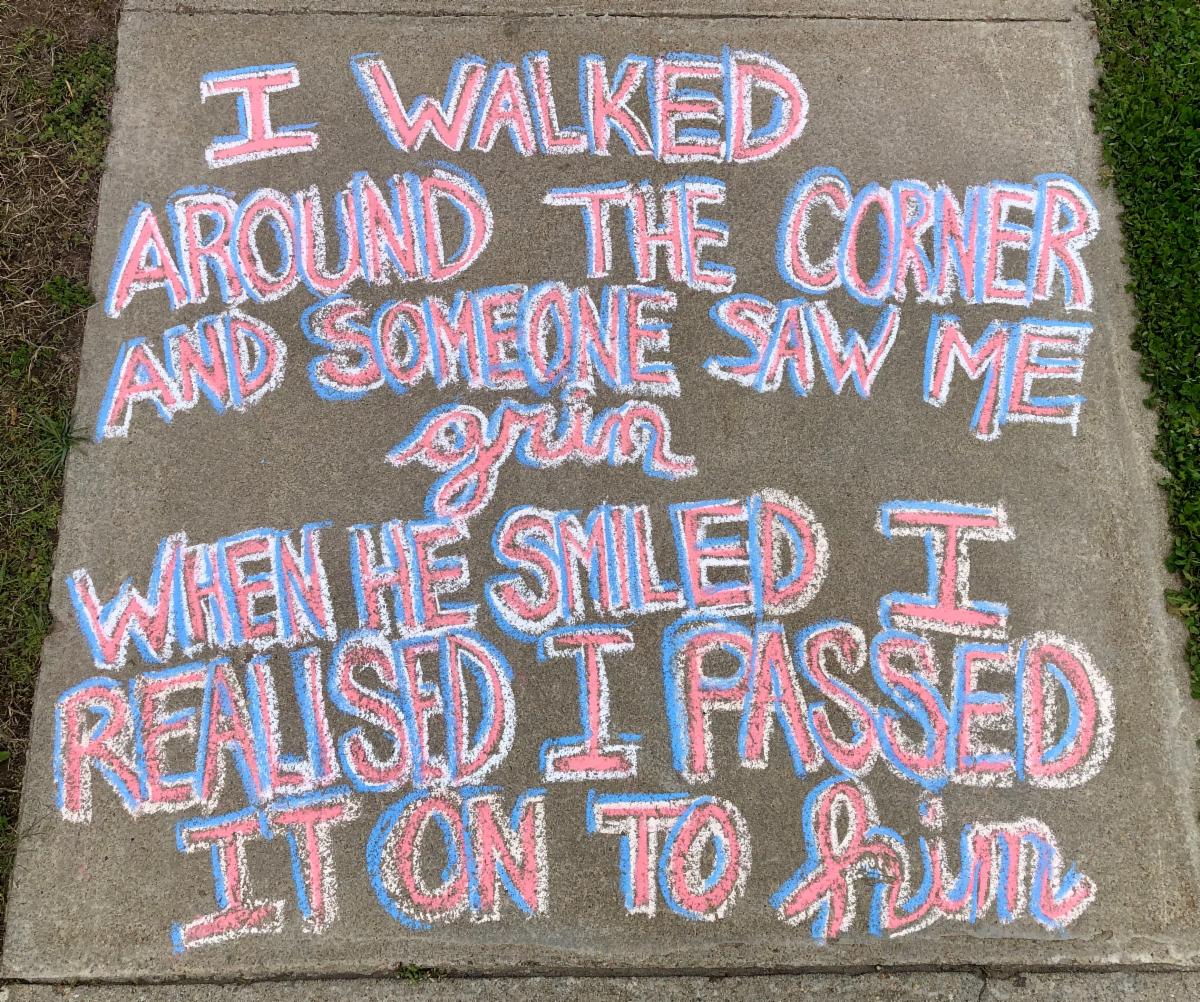 I WALKED
AROUND THE CORNER
AND SOMEONE SAW ME
grin
WHEN HE SMILED I
REALISED I PASSED
IT ON TO him